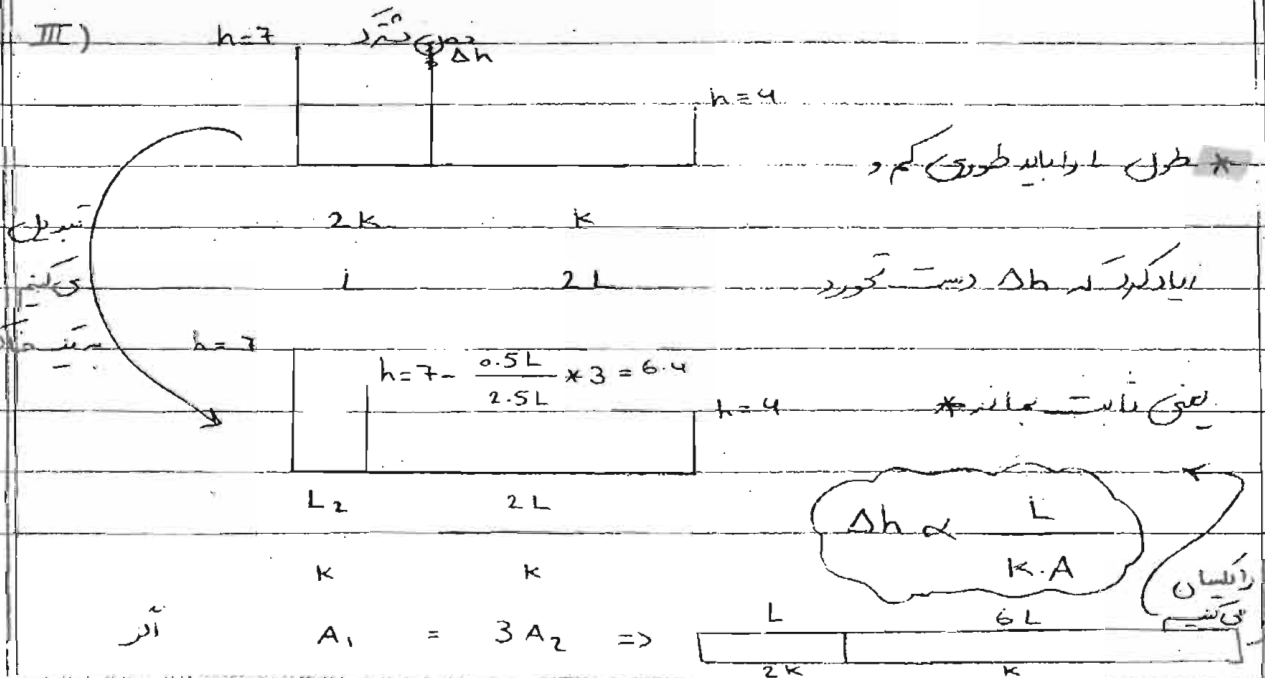 III) h=7 Δh
h=4
* طول L را باید طوری کم و
تبدیل 2K K
می‌کنیم L 2L زیاد کرد که Δh دست نخورد
h=7
h=7- 0.5L/2.5L *3 = 6.4
h=4 یعنی ثابت بماند *
L2 2L
Δh ∝ L/K.A
K K
را یکسان
می‌کنیم
اگر A1 = 3A2 => L 6L
2K K